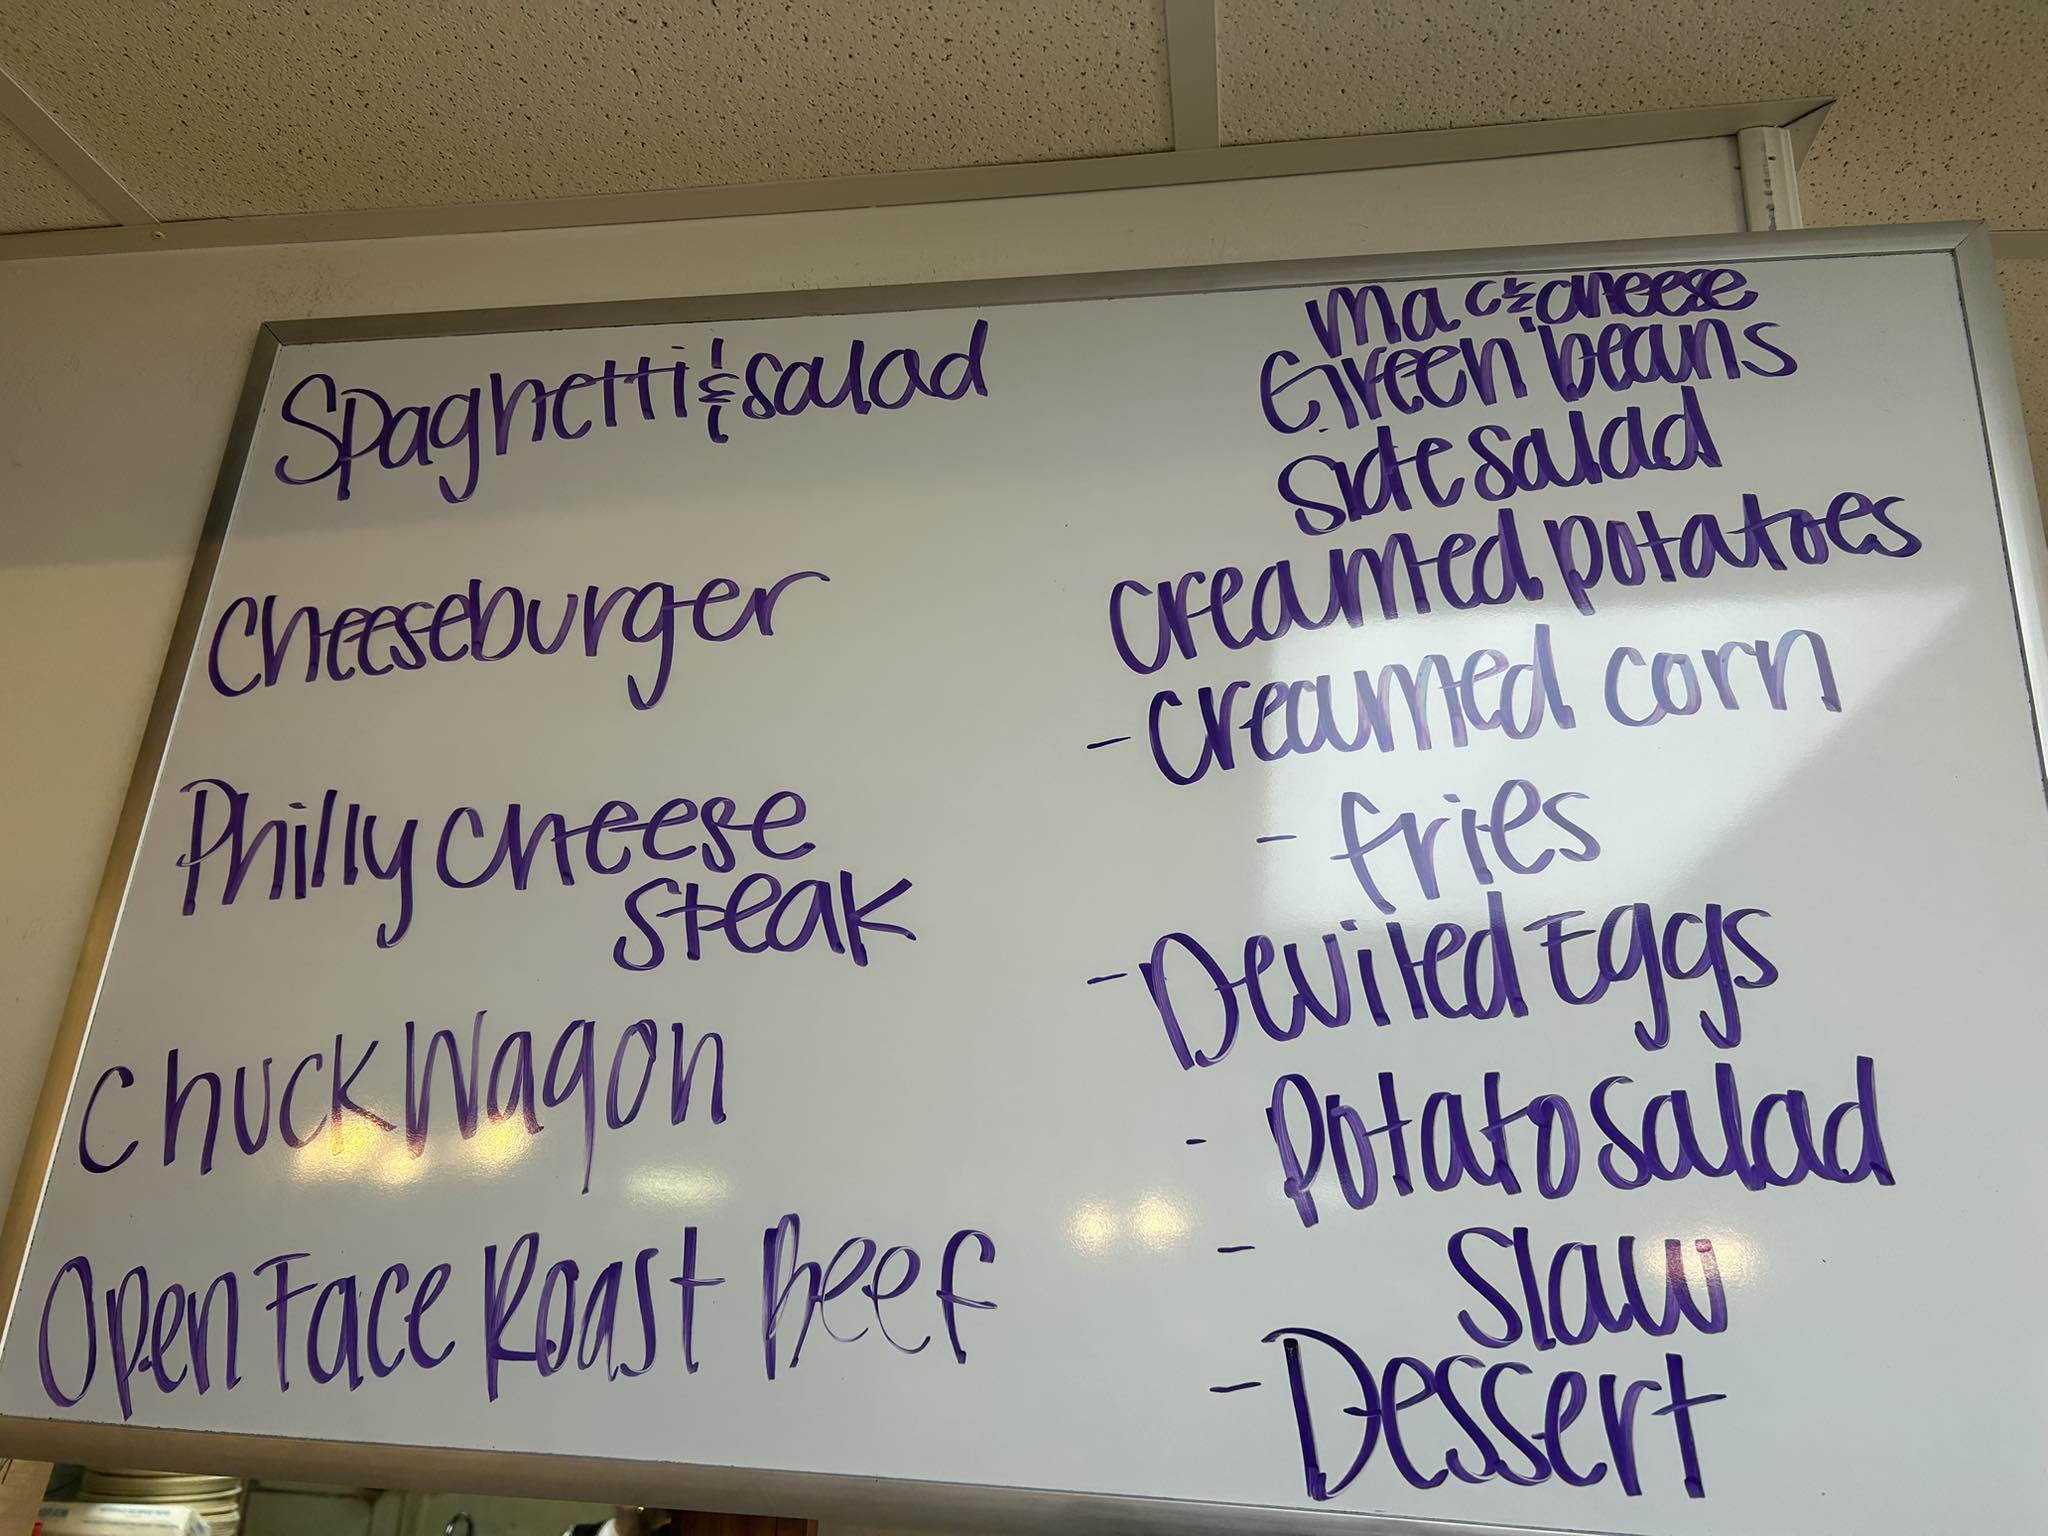 Spaghetti & salad
Cheeseburger
Philly cheese
steak
Chuck Wagon
Open Face Roast Beef
Mac & cheese
Green beans
Side salad
creamed potatoes
- creamed corn
- fries
- Deviled Eggs
- Potato salad
- Slaw
- Dessert